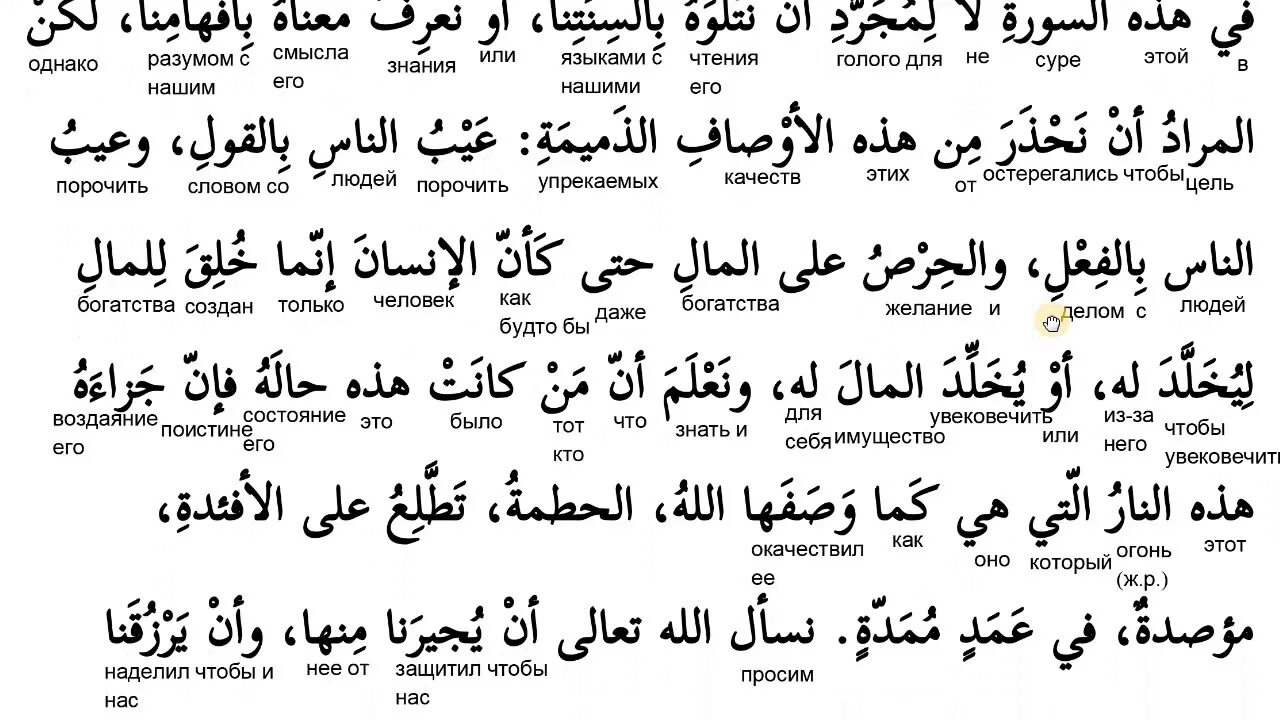 في هذه السورةِ لا لِمُجَرَّدِ أن نتلُوَهُ بِألسِنَتِنا، أو نعرِفَ معناهُ بِأفهامِنا، لكنْ
однако разумом с смысла знания или языками с чтения голого для не суре этой в
нашим его нашими его
المرادُ أنْ نَحْذَرَ مِن هذه الأوْصافِ الذَميمَةِ: عَيْبُ الناسِ بِالقولِ، وعيبُ
порочить словом со людей порочить упрекаемых качеств этих от остерегались чтобы цель
الناس بِالفِعْلِ، والحِرْصُ على المالِ حتى كَأنّ الإنسانَ إنّما خُلِقَ لِلمالِ
богатства создан только человек как даже богатства желание и делом с людей
будто бы
لِيُخَلَّدَ له، أوْ يُخَلِّدَ المالَ له، ونَعْلَمَ أنّ مَنْ كانَتْ هذه حالَهُ فإنّ جَزاءَهُ
воздаяние поистине состояние это было тот что знать и для имущество увековечить или из-за чтобы
его его кто себя него увековечить
هذه النارُ الّتي هي كَما وَصَفَها اللهُ، الحطمةُ، تَطَّلِعُ على الأفئدةِ،
окачествил как оно который огонь этот
ее (ж.р.)
مؤصدةٌ، في عَمَدٍ مُمَدّةٍ. نسأل الله تعالى أنْ يُجيرَنا مِنها، وأنْ يَرْزُقَنا
наделил чтобы и нее от защитил чтобы просим
нас нас